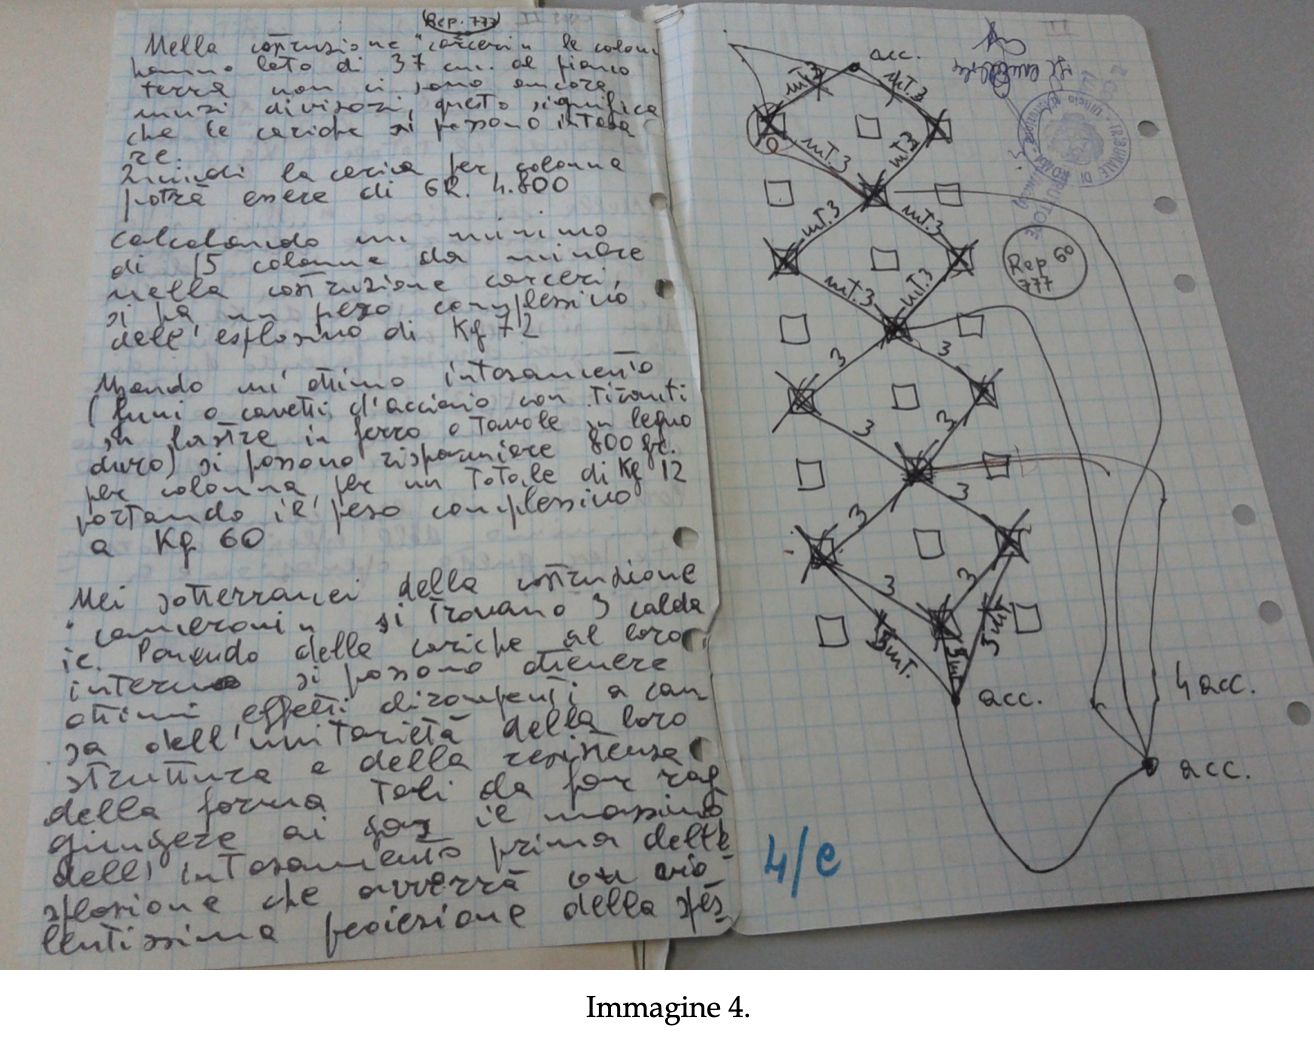 Rep. 777
Nella costruzione "carceri" le colonne
hanno lato di 37 cm. al piano
terra non ci sono ancora
muri divisori, questo significa
che le cariche si possono intasa
re.
Quindi la carica per colonna
potrà essere di GR. 4.800
Calcolando un minimo
di 15 colonne da minare
nella costruzione carceri,
si ha un peso complessivo
dell'esplosivo di Kg 72
Usando un'ottimo intasamento
(funi o cavetti d'acciaio con tiranti
su lastre in ferro o tavole in legno
duro) si possono risparmiare 800 gr.
per colonna, per un totale di Kg 12
portando il peso complessivo
a Kg 60
Nei sotterranei della costruzione
"cameroni" si trovano 3 calda
ie. Ponendo delle cariche al loro
interno si possono ottenere
ottimi effetti dirompenti a cau
sa dell'unitarietà della loro
struttura e della resistenza
della forma tali da far rag
giungere ai gas il massimo
dell'intasamento prima della e
splosione che avverrà con vio
lentissima proiezione della
acc.
mT.3
mT.3
mT.3
mT.3
mT.3
mT.3
mT.3
mT.3
Rep 60
777
3
3
3
3
3
3
3
3
3mT.
3mT
3mT
acc.
4 acc.
acc.
4/e
TRIBUNALE DI ROMA
Immagine 4.